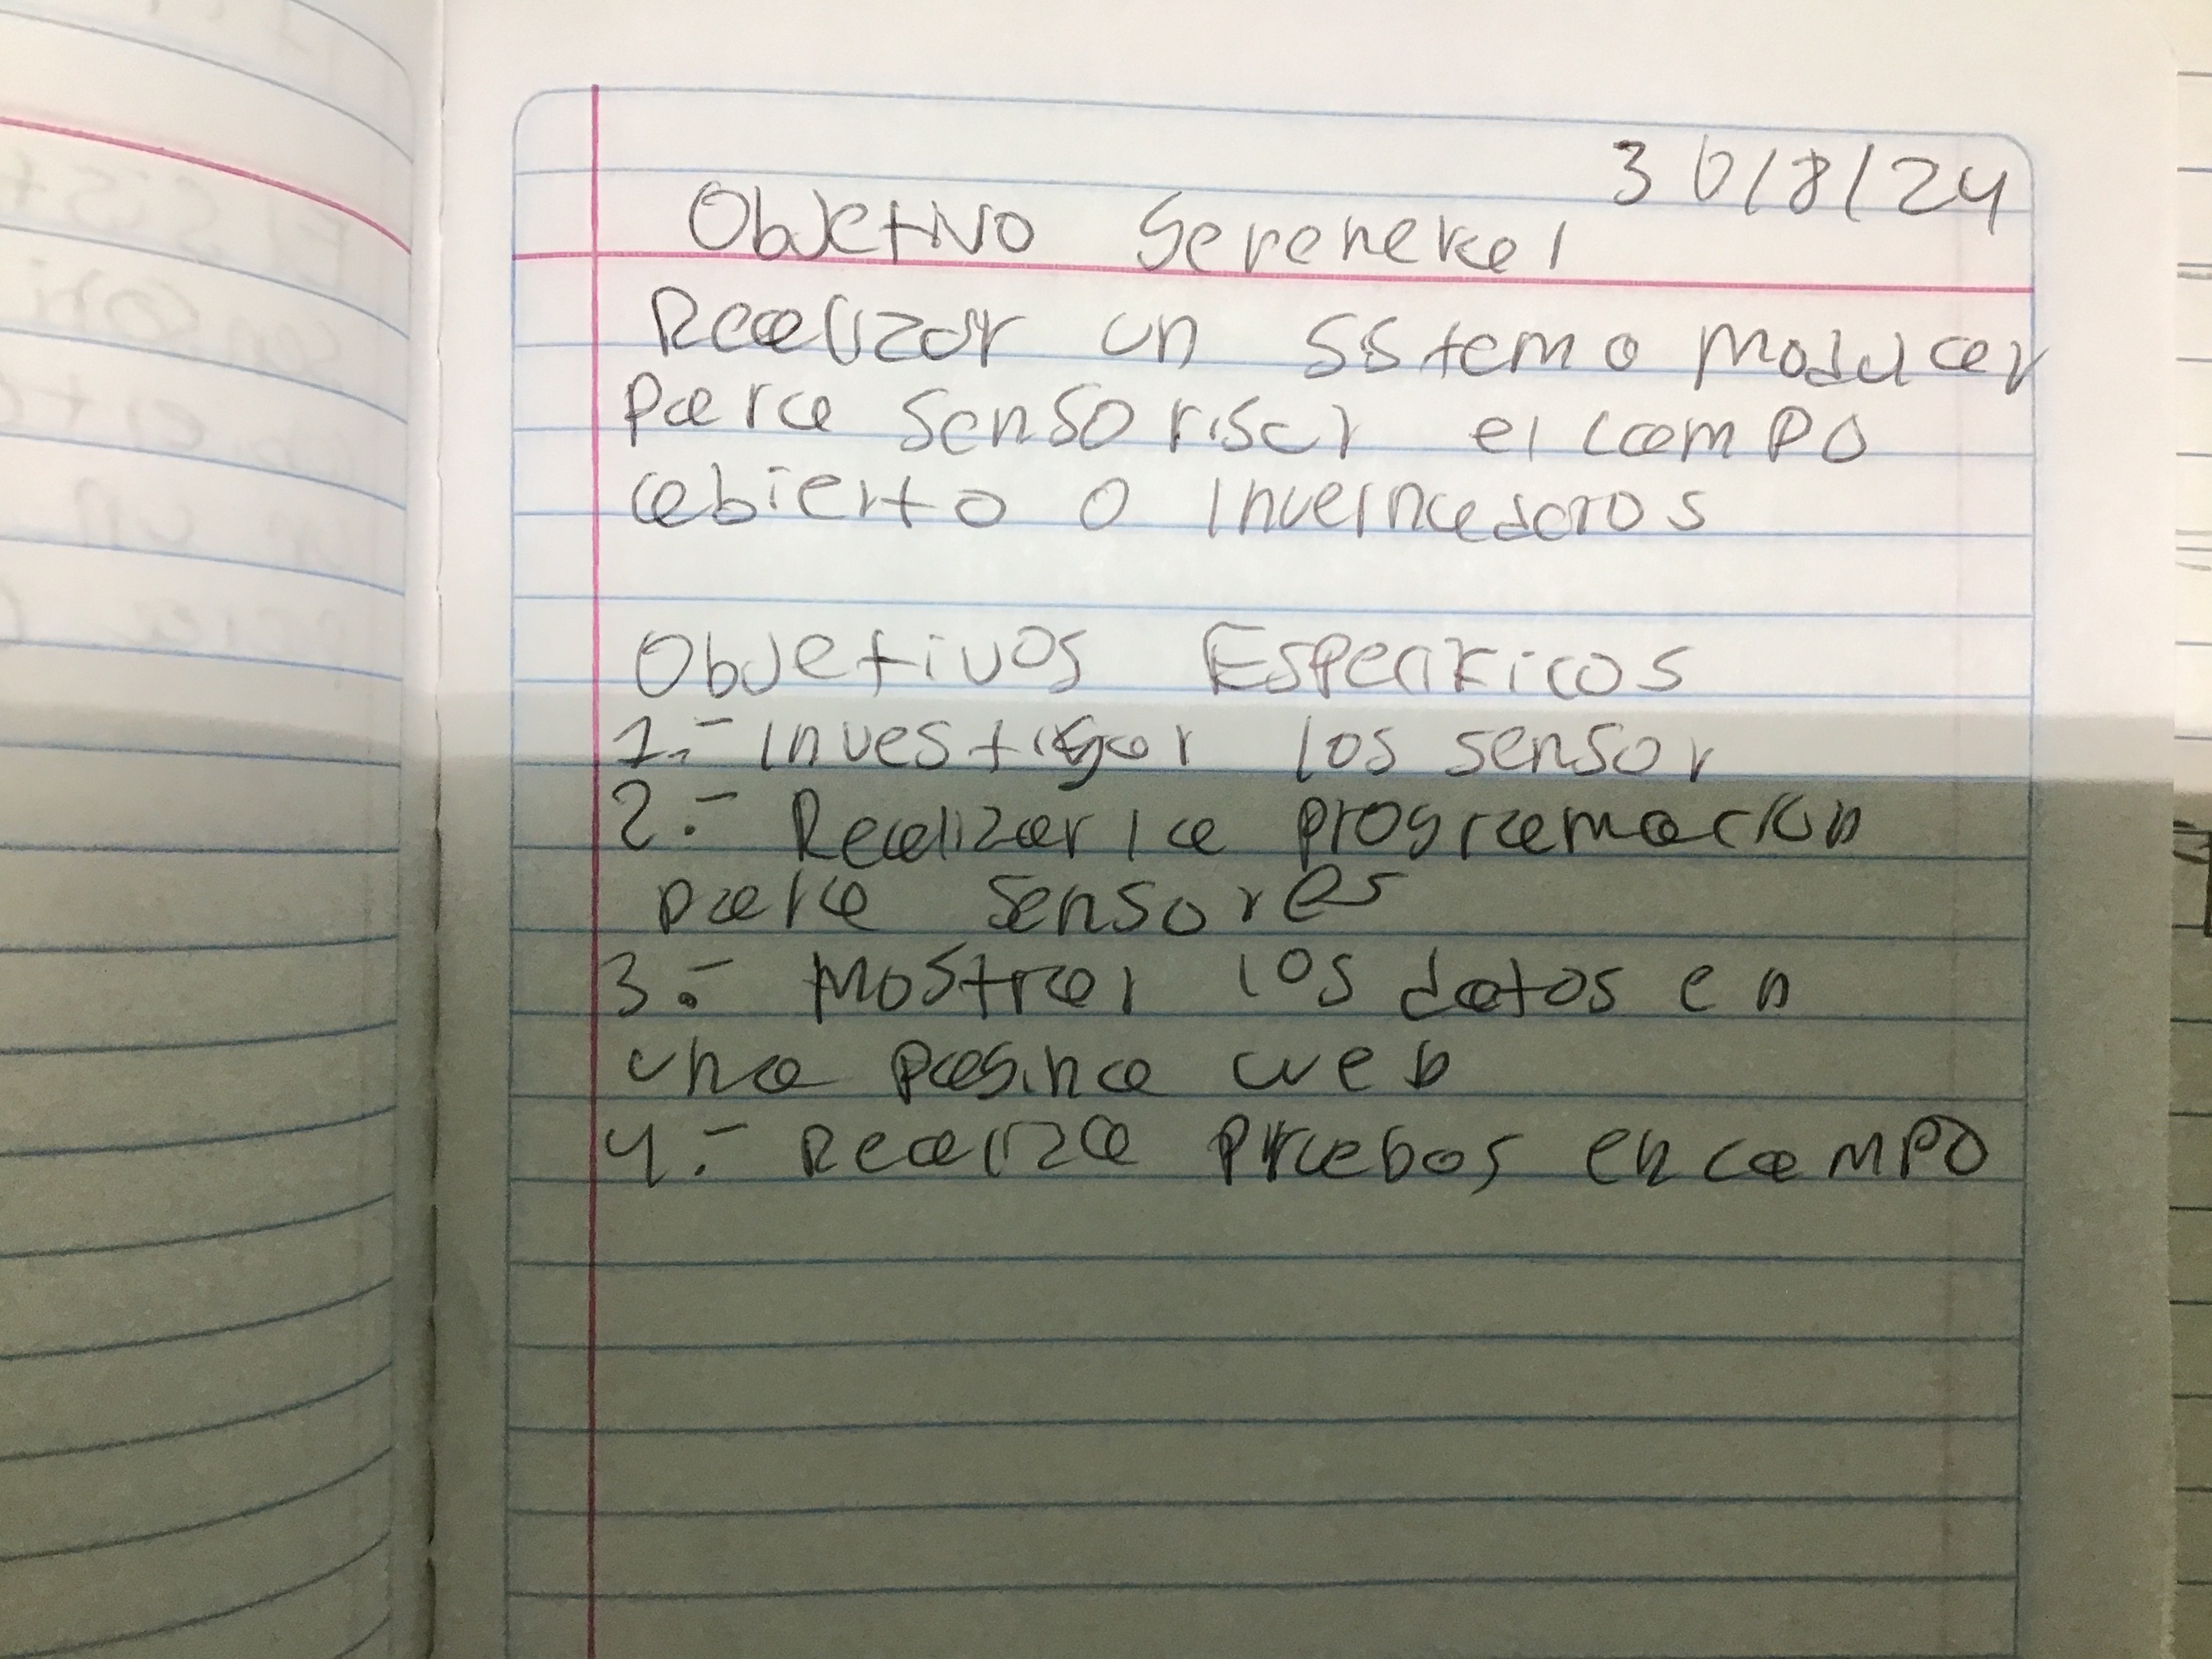 30/8/24
Objetivo Gereneral
Realizar un sistema modular
para sensorisar el campo
abierto o invernadoros
Objetivos Especificos
1.- investigar los sensor
2.- Realizar la programacion
para sensores
3.- Mostrar los datos en
una pagina web
4.- Realiza Pruebas en campo